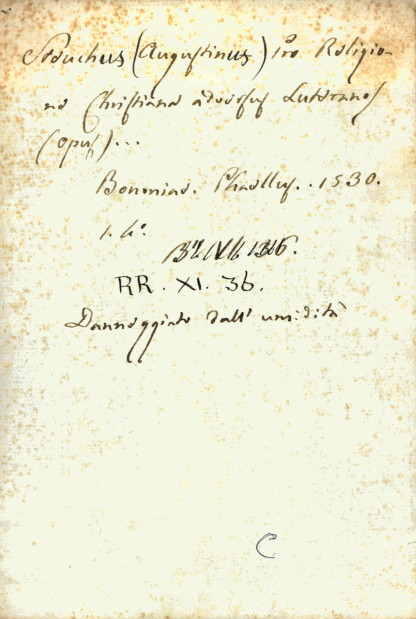 Steuchus (Augustinus) Pro Religio-
ne Christiana adversus Luteranos
(opus)...
Bononiae. Phaellus. . 1530.
1. 4°.
1316.
RR. XI. 36.
Danneggiato dall' umidità
C